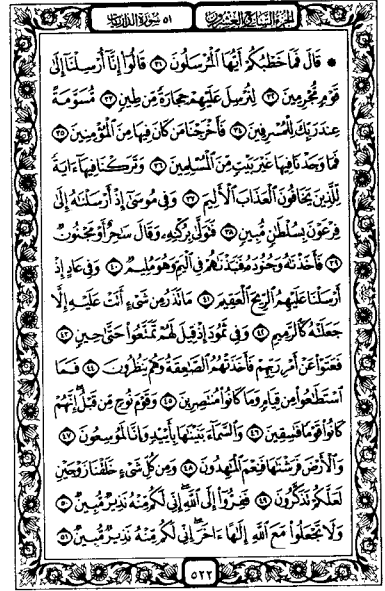 الجزء السابع والعشرون ٥١ سورة الذاريات
* قَالَ فَمَا خَطْبُكُمْ أَيُّهَا الْمُرْسَلُونَ ٣١ قَالُوا إِنَّا أُرْسِلْنَا إِلَى
قَوْمٍ مُّجْرِمِينَ ٣٢ لِنُرْسِلَ عَلَيْهِمْ حِجَارَةً مِّن طِينٍ ٣٣ مُّسَوَّمَةً
عِندَ رَبِّكَ لِلْمُسْرِفِينَ ٣٤ فَأَخْرَجْنَا مَن كَانَ فِيهَا مِنَ الْمُؤْمِنِينَ ٣٥
فَمَا وَجَدْنَا فِيهَا غَيْرَ بَيْتٍ مِّنَ الْمُسْلِمِينَ ٣٦ وَتَرَكْنَا فِيهَا ءَايَةً
لِّلَّذِينَ يَخَافُونَ الْعَذَابَ الْأَلِيمَ ٣٧ وَفِي مُوسَىٰ إِذْ أَرْسَلْنَاهُ إِلَىٰ
فِرْعَوْنَ بِسُلْطَانٍ مُّبِينٍ ٣٨ فَتَوَلَّىٰ بِرُكْنِهِ وَقَالَ سَاحِرٌ أَوْ مَجْنُونٌ
٣٩ فَأَخَذْنَاهُ وَجُنُودَهُ فَنَبَذْنَاهُمْ فِي الْيَمِّ وَهُوَ مُلِيمٌ ٤٠ وَفِي عَادٍ إِذْ
أَرْسَلْنَا عَلَيْهِمُ الرِّيحَ الْعَقِيمَ ٤١ مَا تَذَرُ مِن شَيْءٍ أَتَتْ عَلَيْهِ إِلَّا
جَعَلَتْهُ كَالرَّمِيمِ ٤٢ وَفِي ثَمُودَ إِذْ قِيلَ لَهُمْ تَمَتَّعُوا حَتَّىٰ حِينٍ ٤٣
فَعَتَوْا عَنْ أَمْرِ رَبِّهِمْ فَأَخَذَتْهُمُ الصَّاعِقَةُ وَهُمْ يَنظُرُونَ ٤٤ فَمَا
اسْتَطَاعُوا مِن قِيَامٍ وَمَا كَانُوا مُنتَصِرِينَ ٤٥ وَقَوْمَ نُوحٍ مِّن قَبْلُ إِنَّهُمْ
كَانُوا قَوْمًا فَاسِقِينَ ٤٦ وَالسَّمَاءَ بَنَيْنَاهَا بِأَيْيدٍ وَإِنَّا لَمُوسِعُونَ ٤٧
وَالْأَرْضَ فَرَشْنَاهَا فَنِعْمَ الْمَاهِدُونَ ٤٨ وَمِن كُلِّ شَيْءٍ خَلَقْنَا زَوْجَيْنِ
لَعَلَّكُمْ تَذَكَّرُونَ ٤٩ فَفِرُّوا إِلَى اللَّهِ إِنِّي لَكُم مِّنْهُ نَذِيرٌ مُّبِينٌ ٥٠
وَلَا تَجْعَلُوا مَعَ اللَّهِ إِلَٰهًا ءَاخَرَ إِنِّي لَكُم مِّنْهُ نَذِيرٌ مُّبِينٌ ٥١
٥٢٢